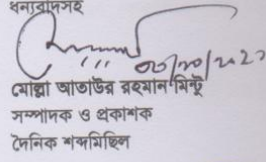 ধন্যবাদসহ
মোল্লা আতাউর রহমান মিন্টু
সম্পাদক ও প্রকাশক
দৈনিক শব্দমিছিল